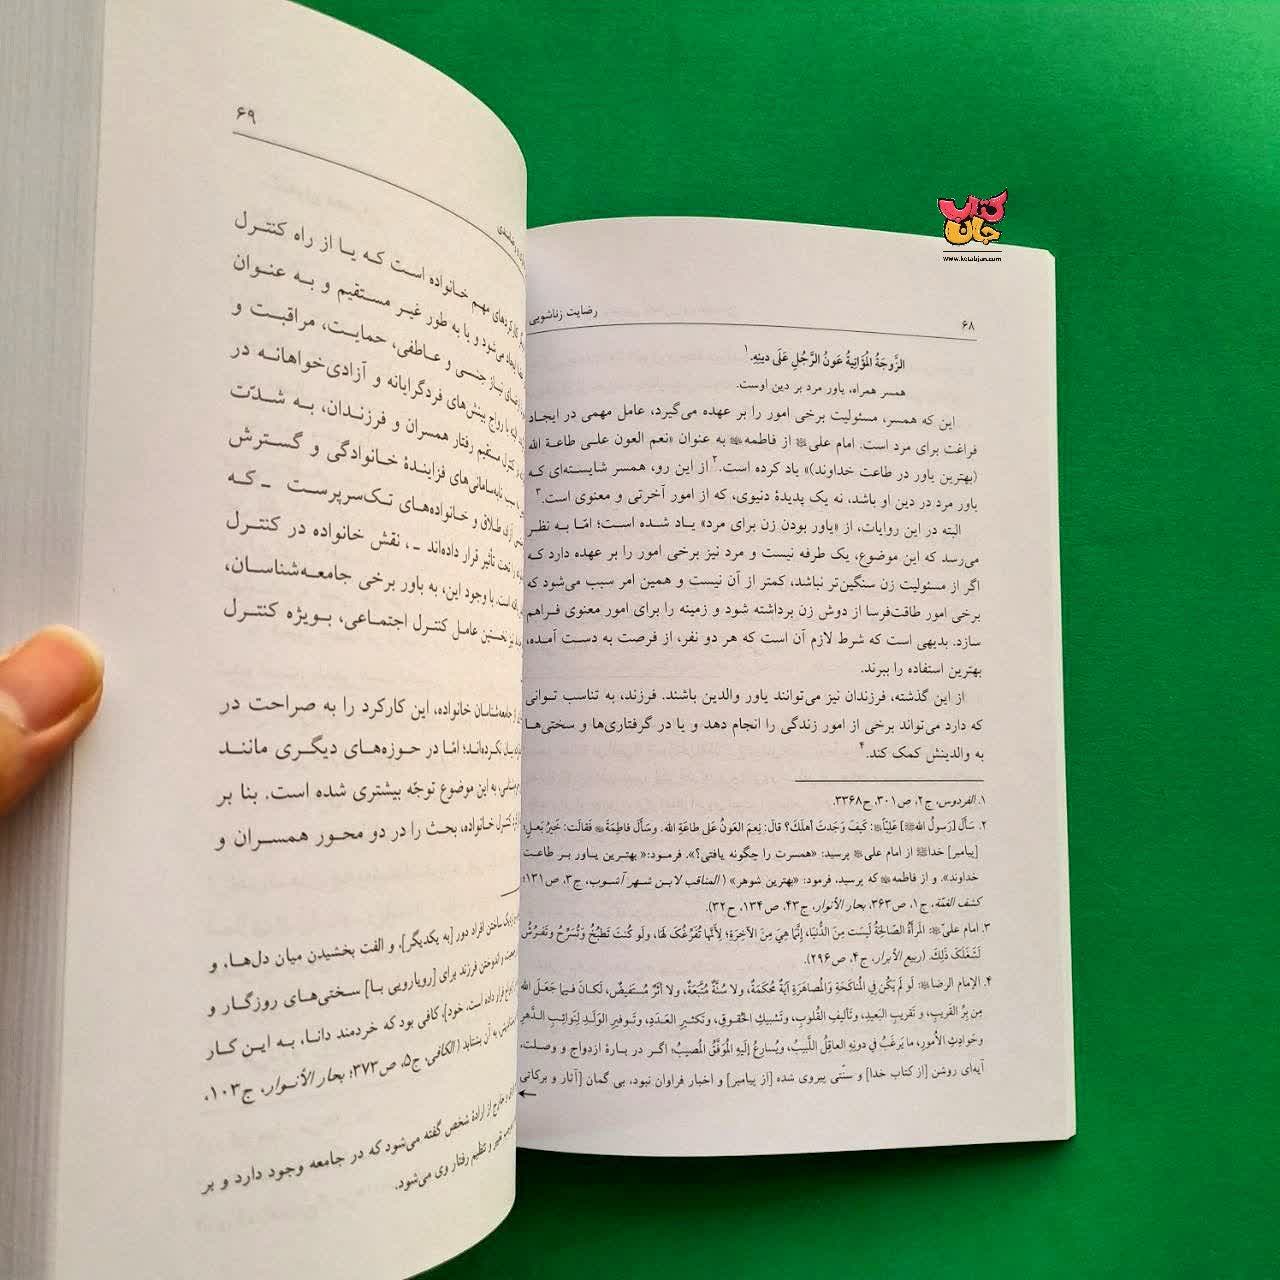 کتاب
جان
www.ketabjan.com
۶۸
رضایت زناشویی
الزَّوجَةُ المُؤاتِيَةُ عَونُ الرَّجُلِ عَلى دينِهِ.۱
همسر همراه، یاور مرد بر دین اوست.
این که همسر، مسئولیت برخی امور را بر عهده می‌گیرد، عامل مهمی در ایجاد
فراغت برای مرد است. امام علی از فاطمه به عنوان «نعم العون علی طاعة الله
(بهترین یاور در طاعت خداوند)» یاد کرده است.۲ از این رو، همسر شایسته‌ای که
یاور مرد در دین او باشد، نه یک پدیدهٔ دنیوی، که از امور آخرتی و معنوی است.۳
البته در این روایات، از «یاور بودن زن برای مرد» یاد شده است؛ امّا به نظر
می‌رسد که این موضوع، یک طرفه نیست و مرد نیز برخی امور را بر عهده دارد که
اگر از مسئولیت زن سنگین‌تر نباشد، کمتر از آن نیست و همین امر سبب می‌شود که
برخی امور طاقت‌فرسا از دوش زن برداشته شود و زمینه را برای امور معنوی فراهم
سازد. بدیهی است که شرط لازم آن است که هر دو نفر، از فرصت به دست آمده،
بهترین استفاده را ببرند.
از این گذشته، فرزندان نیز می‌توانند یاور والدین باشند. فرزند، به تناسب توانی
که دارد می‌تواند برخی از امور زندگی را انجام دهد و یا در گرفتاری‌ها و سختی‌ها
به والدینش کمک کند.۴
۱. الفردوس، ج۲، ص۳۰۱، ح۳۳۶۸.
۲. سَأَلَ [رَسولُ اللهِ] عَلِيّاً: كَيفَ وَجَدتَ أهلَكَ؟ قالَ: نِعمَ العَونُ عَلى طاعَةِ اللهِ. وسَأَلَ فاطِمَةَ فَقالَت: خَيرُ بَعلٍ؛
[پیامبر] خدا از امام علی پرسید: «همسرت را چگونه یافتی؟». فرمود: «بهترین یاور بر طاعت
خداوند». و از فاطمه که پرسید، فرمود: «بهترین شوهر» (المناقب لابن شهر آشوب، ج۳، ص۱۳۱؛
کشف الغمّة، ج۱، ص۳۶۳، بحار الأنوار، ج۴۳، ص۱۳۴، ح۳۲).
۳. امام علی: المَرأَةُ الصّالِحَةُ لَيسَت مِنَ الدُّنيا، إنَّما هِيَ مِنَ الآخِرَةِ؛ لِأَنَّها تُفَرِّغُكَ لَها، ولَو كُنتَ تَطبُخُ وتُسَرِّحُ وتَفرُشُ
لَشَغَلَكَ ذلِكَ. (ربیع الأبرار، ج۴، ص۲۹۶).
۴. الإمام الرضا: لَو لَم يَكُن فِي المُناكَحَةِ وَالمُصاهَرَةِ آيَةٌ مُحكَمَةٌ، ولا سُنَّةٌ مُتَّبَعَةٌ، ولا أثَرٌ مُستَفيضٌ، لَكانَ فيما جَعَلَ اللهُ
مِن بِرِّ القَريبِ، و تَقريبِ البَعيدِ، وتَأليفِ القُلوبِ، وتَشبيكِ الحُقوقِ، وتَكثيرِ العَدَدِ، وتَوفيرِ الوَلَدِ لِنَوائِبِ الدَّهرِ
وحَوادِثِ الأُمورِ، ما يَرغَبُ في دونِهِ العاقِلُ اللَّبيبُ، ويُسارِعُ إلَيهِ المُوَفَّقُ المُصيبُ؛ اگر در بارهٔ ازدواج و وصلت،
آیه‌ای روشن [از کتاب خدا] و سنّتی پیروی شده [از پیامبر] و اخبار فراوان نبود، بی گمان [آثار و برکاتی
۶۹
کارکردهای مهم خانواده است که یا از راه کنترل
ایجاد می‌شود و یا به طور غیر مستقیم و به عنوان
نیاز جنسی و عاطفی، حمایت، مراقبت و
با رواج بینش‌های فردگرایانه و آزادی‌خواهانه در
کنترل مستقیم رفتار همسران و فرزندان، به شدّت
سبب نابه‌سامانی‌های فزایندهٔ خانوادگی و گسترش
طلاق و خانواده‌های تک‌سرپرست ـ که
را تحت تأثیر قرار داده‌اند ـ، نقش خانواده در کنترل
است. با وجود این، به باور برخی جامعه‌شناسان،
نیز نخستین عامل کنترل اجتماعی، بویژه کنترل
از جامعه‌شناسان خانواده، این کارکرد را به صراحت در
بیان نکرده‌اند؛ امّا در حوزه‌های دیگری مانند
به این موضوع توجّه بیشتری شده است. بنا بر
کنترل خانواده، بحث را در دو محور همسران و
نزدیک ساختن افراد دور [به یکدیگر]، و الفت بخشیدن میان دل‌ها، و
و اندوختن فرزند برای [رویارویی با] سختی‌های روزگار و
قرار داده است، خود]، کافی بود که خردمند دانا، به این کار
به آن بشتابد (الکافی، ج۵، ص۳۷۳؛ بحار الأنوار، ج۱۰۳،
خارج از ارادهٔ شخص گفته می‌شود که در جامعه وجود دارد و بر
تغییر و تنظیم رفتار وی می‌شود.